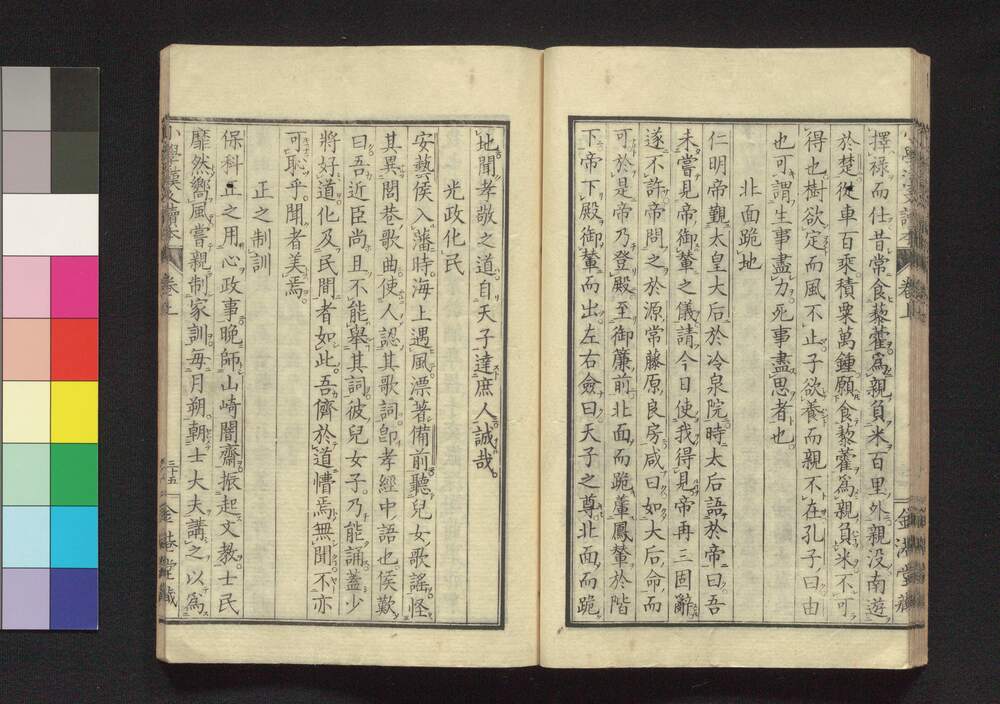 擇祿而仕昔常食藜藿爲親負米百里外親没南遊
於楚從車百乘積粟萬鍾願食藜藿爲親負米不可
得也樹欲定而風不止子欲養而親不在孔子曰由
也可謂生事盡力死事盡思者也。
北面跪地
仁明帝覲太皇大后於冷泉院時太后語於帝曰吾
未嘗見帝御輦之儀請今日使我得見帝再三固辭
遂不許帝問之於源常藤原良房咸曰如大后命而
可於是帝乃登殿至御簾前北面而跪輦鳳輦於階
下帝下殿御輦而出左右僉曰天子之尊北面而跪
地聞孝敬之道自天子達庶人誠哉。
光政化民
安藝侯入藩時海上遇風漂著備前聽兒女歌謠怪
其異閭巷歌曲使人認其歌詞卽孝經中語也侯歎
曰吾近臣尚且不能擧其詞彼兒女子乃能誦蓋少
將好道化及民間者如此吾儕於道慒焉無聞不亦
可恥乎聞者美焉。
正之制訓
保科正之用心政事晩師山崎闇齋振起文教士民
靡然嚮風嘗親制家訓每月朔朝士大夫講之以爲
小學漢文讀本
卷上
三十五
金港堂藏